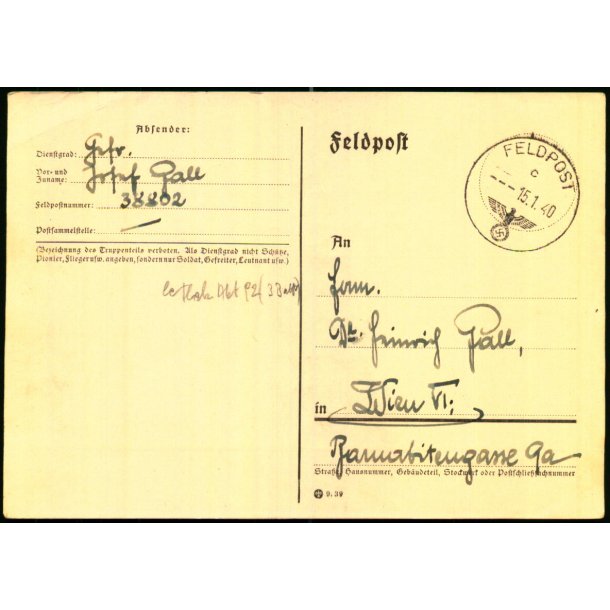 Absender:
Dienstgrad: Gefr.
Vor- und
Zuname: Josef Gall
Feldpostnummer: 38802
Postsammelstelle: —
(Bezeichnung des Truppenteils verboten. Als Dienstgrad nicht Schütze,
Pionier, Flieger usw. angeben, sondern nur Soldat, Gefreiter, Leutnant usw.)
Abt 92
Feldpost
FELDPOST
c
--- 15.1.40
An
Herrn.
Dr. Heinrich Gall,
in Wien VI;
Barnabitengasse 9a
Straße, Hausnummer, Gebäudeteil, Stockwerk oder Postschließfachnummer
9. 39